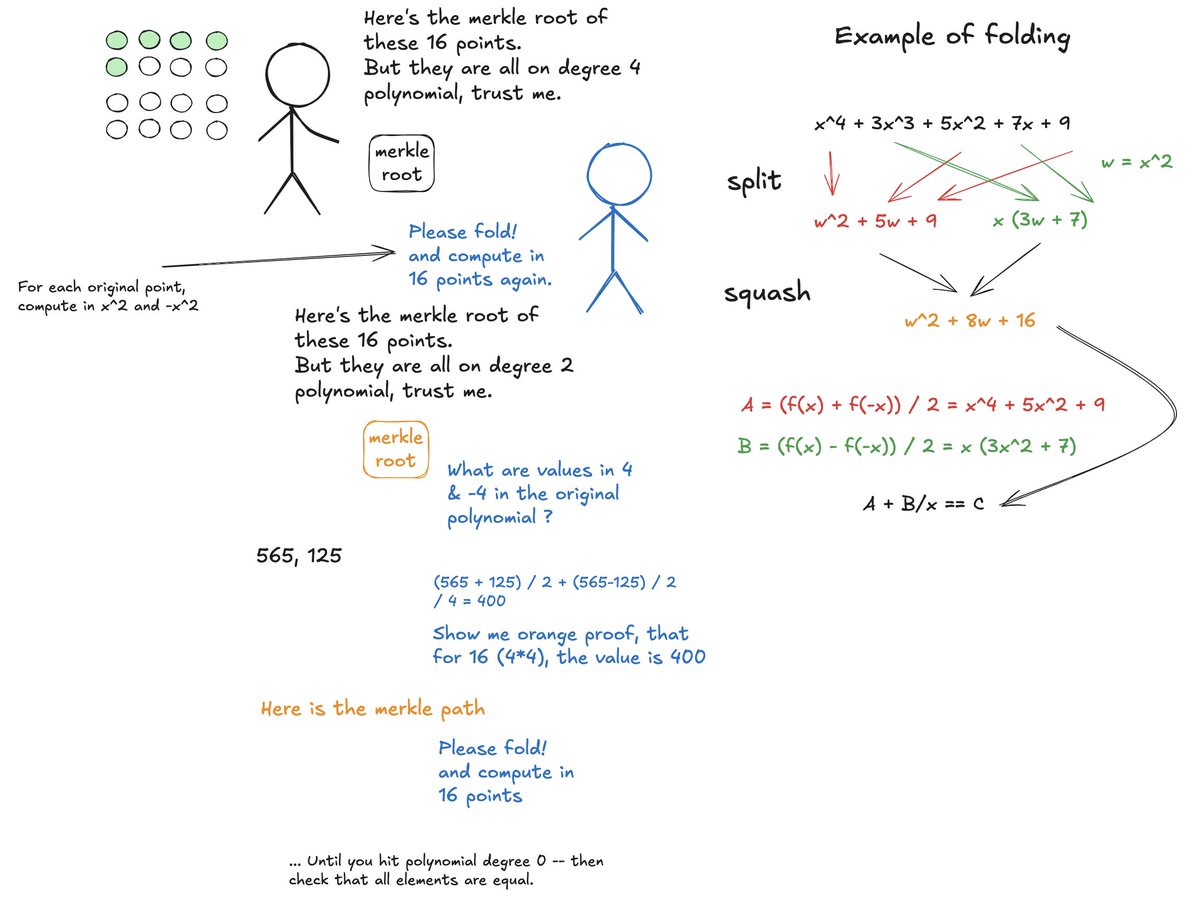 Here's the merkle root of
these 16 points.
But they are all on degree 4
polynomial, trust me.
merkle
root
Please fold!
and compute in
16 points again.
For each original point,
compute in x^2 and -x^2
Here's the merkle root of
these 16 points.
But they are all on degree 2
polynomial, trust me.
merkle
root
What are values in 4
& -4 in the original
polynomial ?
565, 125
(565 + 125) / 2 + (565-125) / 2
/ 4 = 400
Show me orange proof, that
for 16 (4*4), the value is 400
Here is the merkle path
Please fold!
and compute in
16 points
... Until you hit polynomial degree 0 -- then
check that all elements are equal.
Example of folding
x^4 + 3x^3 + 5x^2 + 7x + 9
w = x^2
split
w^2 + 5w + 9
x (3w + 7)
squash
w^2 + 8w + 16
A = (f(x) + f(-x)) / 2 = x^4 + 5x^2 + 9
B = (f(x) - f(-x)) / 2 = x (3x^2 + 7)
A + B/x == C